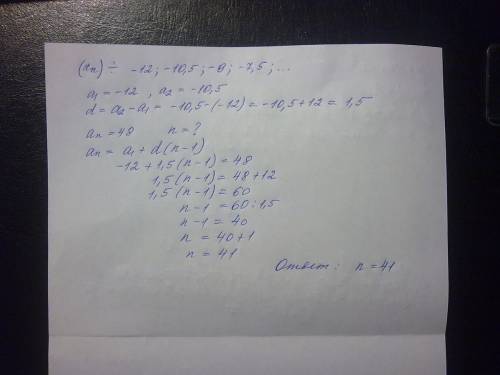 (xn) ÷ -12; -10,5; -9; -7,5; ...
a₁ = -12 , a₂ = -10,5
d = a₂ - a₁ = -10,5 - (-12) = -10,5 + 12 = 1,5
an = 48 n = ?
an = a₁ + d(n-1)
-12 + 1,5(n-1) = 48
1,5(n-1) = 48 + 12
1,5(n-1) = 60
n-1 = 60 : 1,5
n-1 = 40
n = 40 + 1
n = 41
Ответ: n = 41